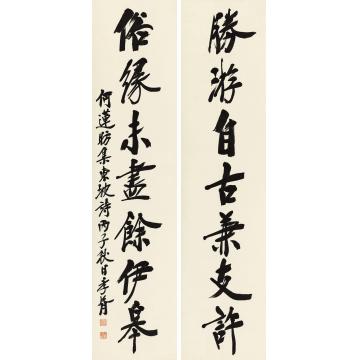 勝游自古兼支許
俗緣未盡餘伊皋
何蓮昉集東坡詩丙子秋日孝胥